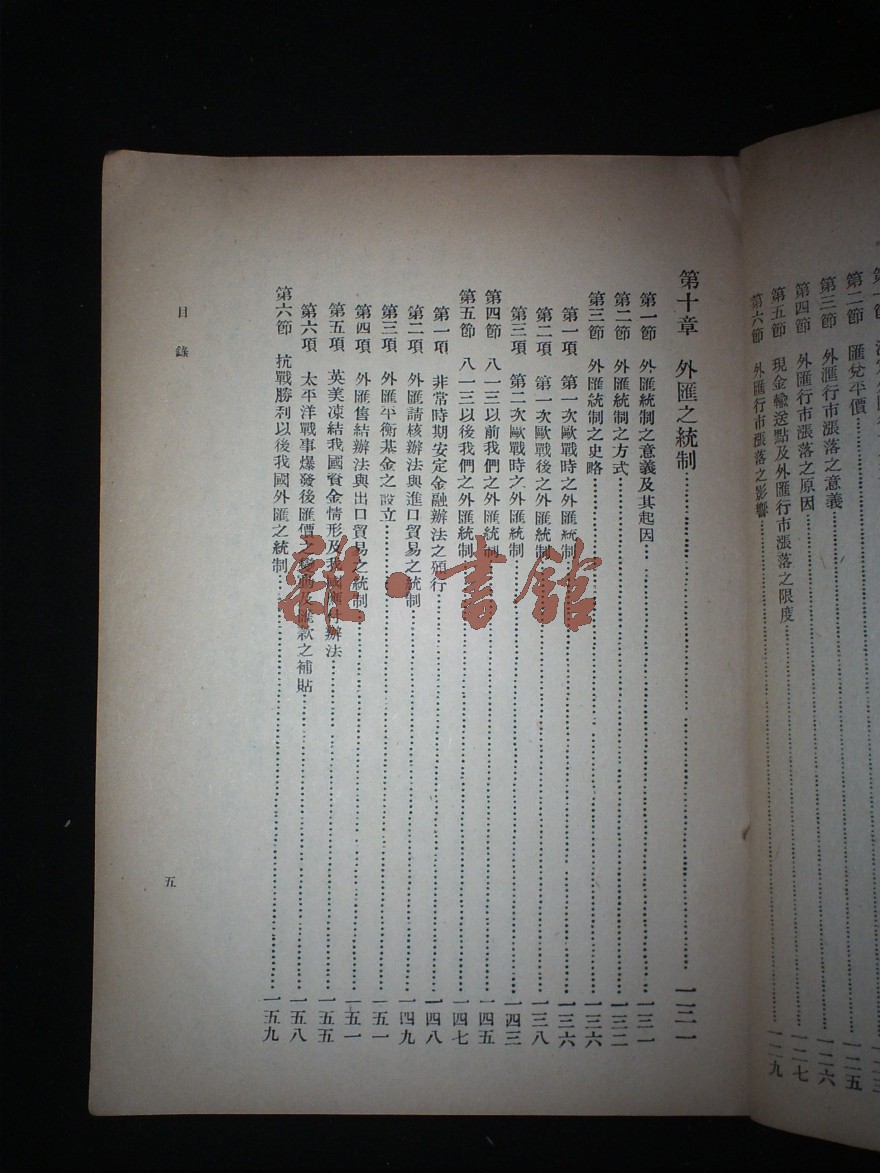 第二節 匯兌平價
第三節 外滙行市漲落之意義……一二五
第四節 外匯行市漲落之原因……一二六
第五節 現金輸送點及外匯行市漲落之限度……一二七
第六節 外匯行市漲落之影響……一二九
第十章 外匯之統制……一三一
第一節 外匯統制之意義及其起因……一三一
第二節 外匯統制之方式……一三二
第三節 外匯統制之史略……一三六
第一項 第一次歐戰時之外匯統制……一三六
第二項 第一次歐戰後之外匯統制……一三八
第三項 第二次歐戰時之外匯統制……一四三
第四節 八一三以前我們之外匯統制……一四五
第五節 八一三以後我們之外匯統制……一四七
第一項 非常時期安定金融辦法之頒行……一四八
第二項 外匯請核辦法與進口貿易之統制……一四九
第三項 外匯平衡基金之設立……一五一
第四項 外匯售結辦法與出口貿易之統制……一五一
第五項 英美凍結我國資金情形及我國應付辦法……一五五
第六項 太平洋戰事爆發後匯價之變動及匯款之補貼……一五八
第六節 抗戰勝利以後我國外匯之統制……一五九
目錄
五
雜·書館